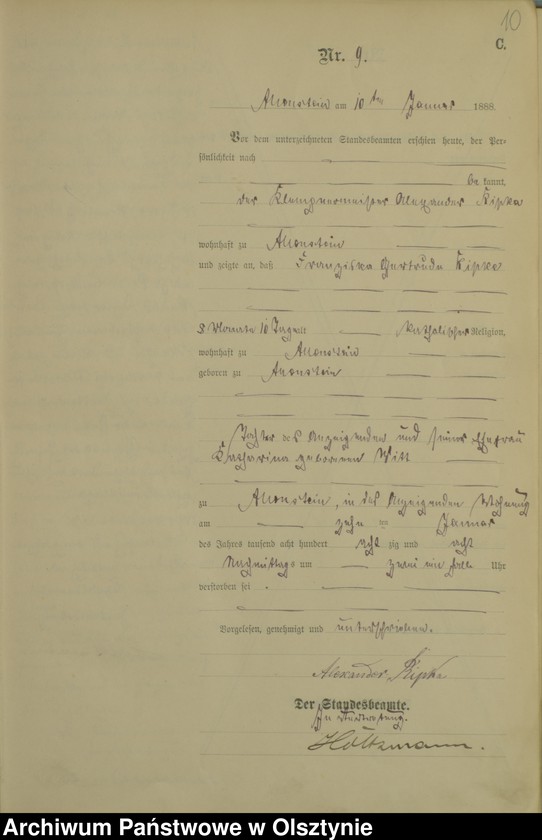 10
C.
Nr. 9.
Allenstein am 10ten Januar 1888.
Vor dem unterzeichneten Standesbeamten erschien heute, der Per-
sönlichkeit nach
be kannt,
der Klempnermeister Alexander Kipka
wohnhaft zu Allenstein
und zeigte an, daß Franziska Gertruda Kipka
3 Monate 10 Tage alt katholischer Religion,
wohnhaft zu Allenstein
geboren zu Allenstein
Tochter des Anzeigenden und seiner Ehefrau
Katharina geborenen Witt
zu Allenstein, in des Anzeigenden Wohnung
am zehn ten Januar
des Jahres tausend acht hundert acht zig und acht
Nachmittags um zwei ein halb Uhr
verstorben sei.
Vorgelesen, genehmigt und unterschrieben.
Alexander Kipka
Der Standesbeamte.
In Vertretung.
Holtzmann.
Archiwum Państwowe w Olsztynie